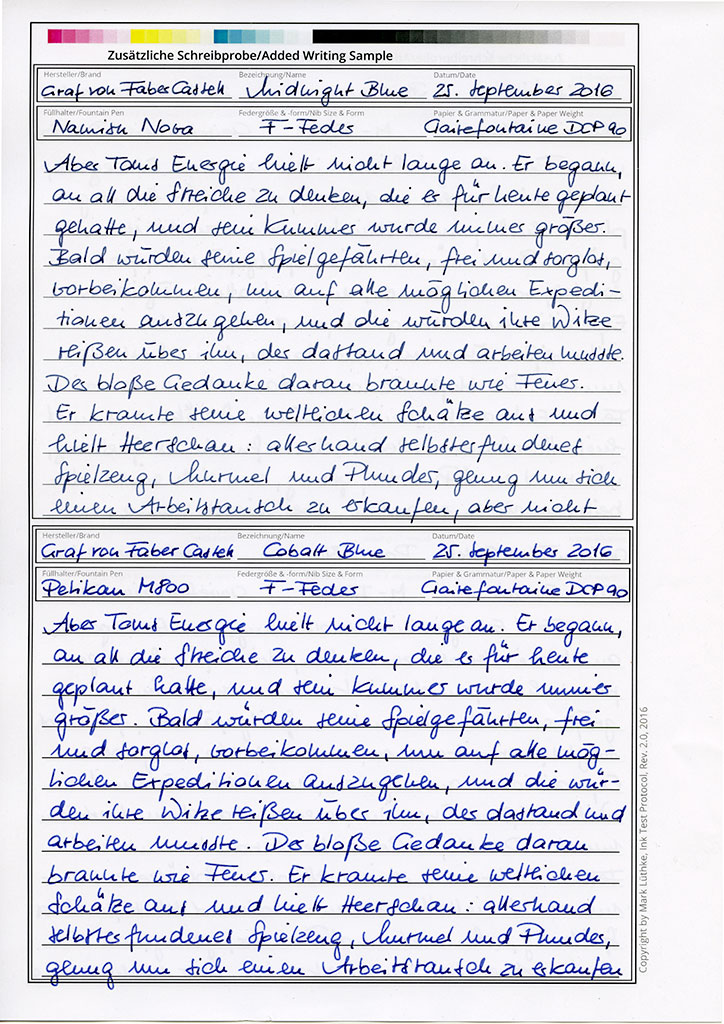 Zusätzliche Schreibprobe/Added Writing Sample
Hersteller/Brand Bezeichnung/Name Datum/Date
Graf von Faber Castell Midnight Blue 25. September 2016
Füllhalter/Fountain Pen Federgröße & -form/Nib Size & Form Papier & Grammatur/Paper & Paper Weight
Namisu Nova F-Feder Clairefontaine DCP 90
Aber Toms Energie hielt nicht lange an. Er begann,
an all die Streiche zu denken, die er für heute geplant
gehatte, und sein Kummer wurde immer größer.
Bald würden seine Spielgefährten, frei und sorglos,
vorbeikommen, um auf alle möglichen Expedi-
tionen auszugehen, und die würden ihre Witze
reißen über ihn, der dastand und arbeiten musste.
Der bloße Gedanke daran brannte wie Feuer.
Er kramte seine weltlichen Schätze aus und
hielt Heerschau: allerhand selbsterfundenes
Spielzeug, Murmel und Plunder, genug um sich
einen Arbeitstausch zu erkaufen, aber nicht
Hersteller/Brand Bezeichnung/Name Datum/Date
Graf von Faber Castell Cobalt Blue 25. September 2016
Füllhalter/Fountain Pen Federgröße & -form/Nib Size & Form Papier & Grammatur/Paper & Paper Weight
Pelikan M800 F-Feder Clairefontaine DCP 90
Aber Toms Energie hielt nicht lange an. Er begann,
an all die Streiche zu denken, die er für heute
geplant hatte, und sein Kummer wurde immer
größer. Bald würden seine Spielgefährten, frei
und sorglos, vorbeikommen, um auf alle mög-
lichen Expeditionen auszugehen, und die wür-
den ihre Witze reißen über ihn, der dastand und
arbeiten musste. Der bloße Gedanke daran
brannte wie Feuer. Er kramte seine weltlichen
Schätze aus und hielt Heerschau: allerhand
selbsterfundenes Spielzeug, Murmel und Plunder,
genug um sich einen Arbeitstausch zu erkaufen
Copyright by Mark Lüthke, Ink Test Protocol, Rev. 2.0, 2016